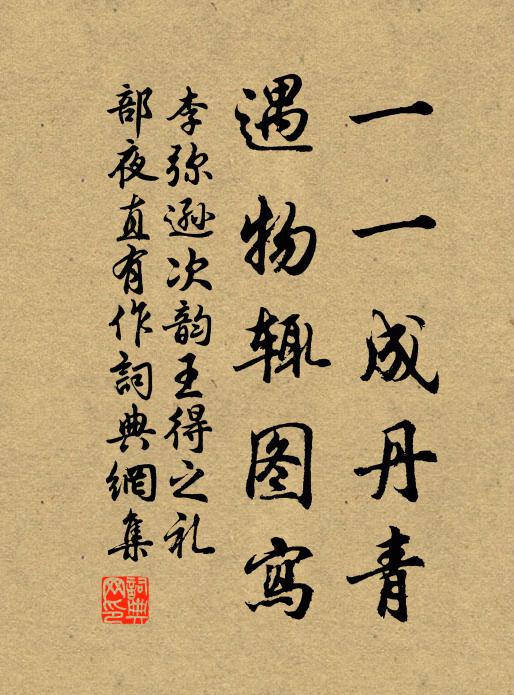 一一成丹青
遇物辄图寫
李弥逊次韵王得之礼
部夜直有作詞典網集
詞典网印